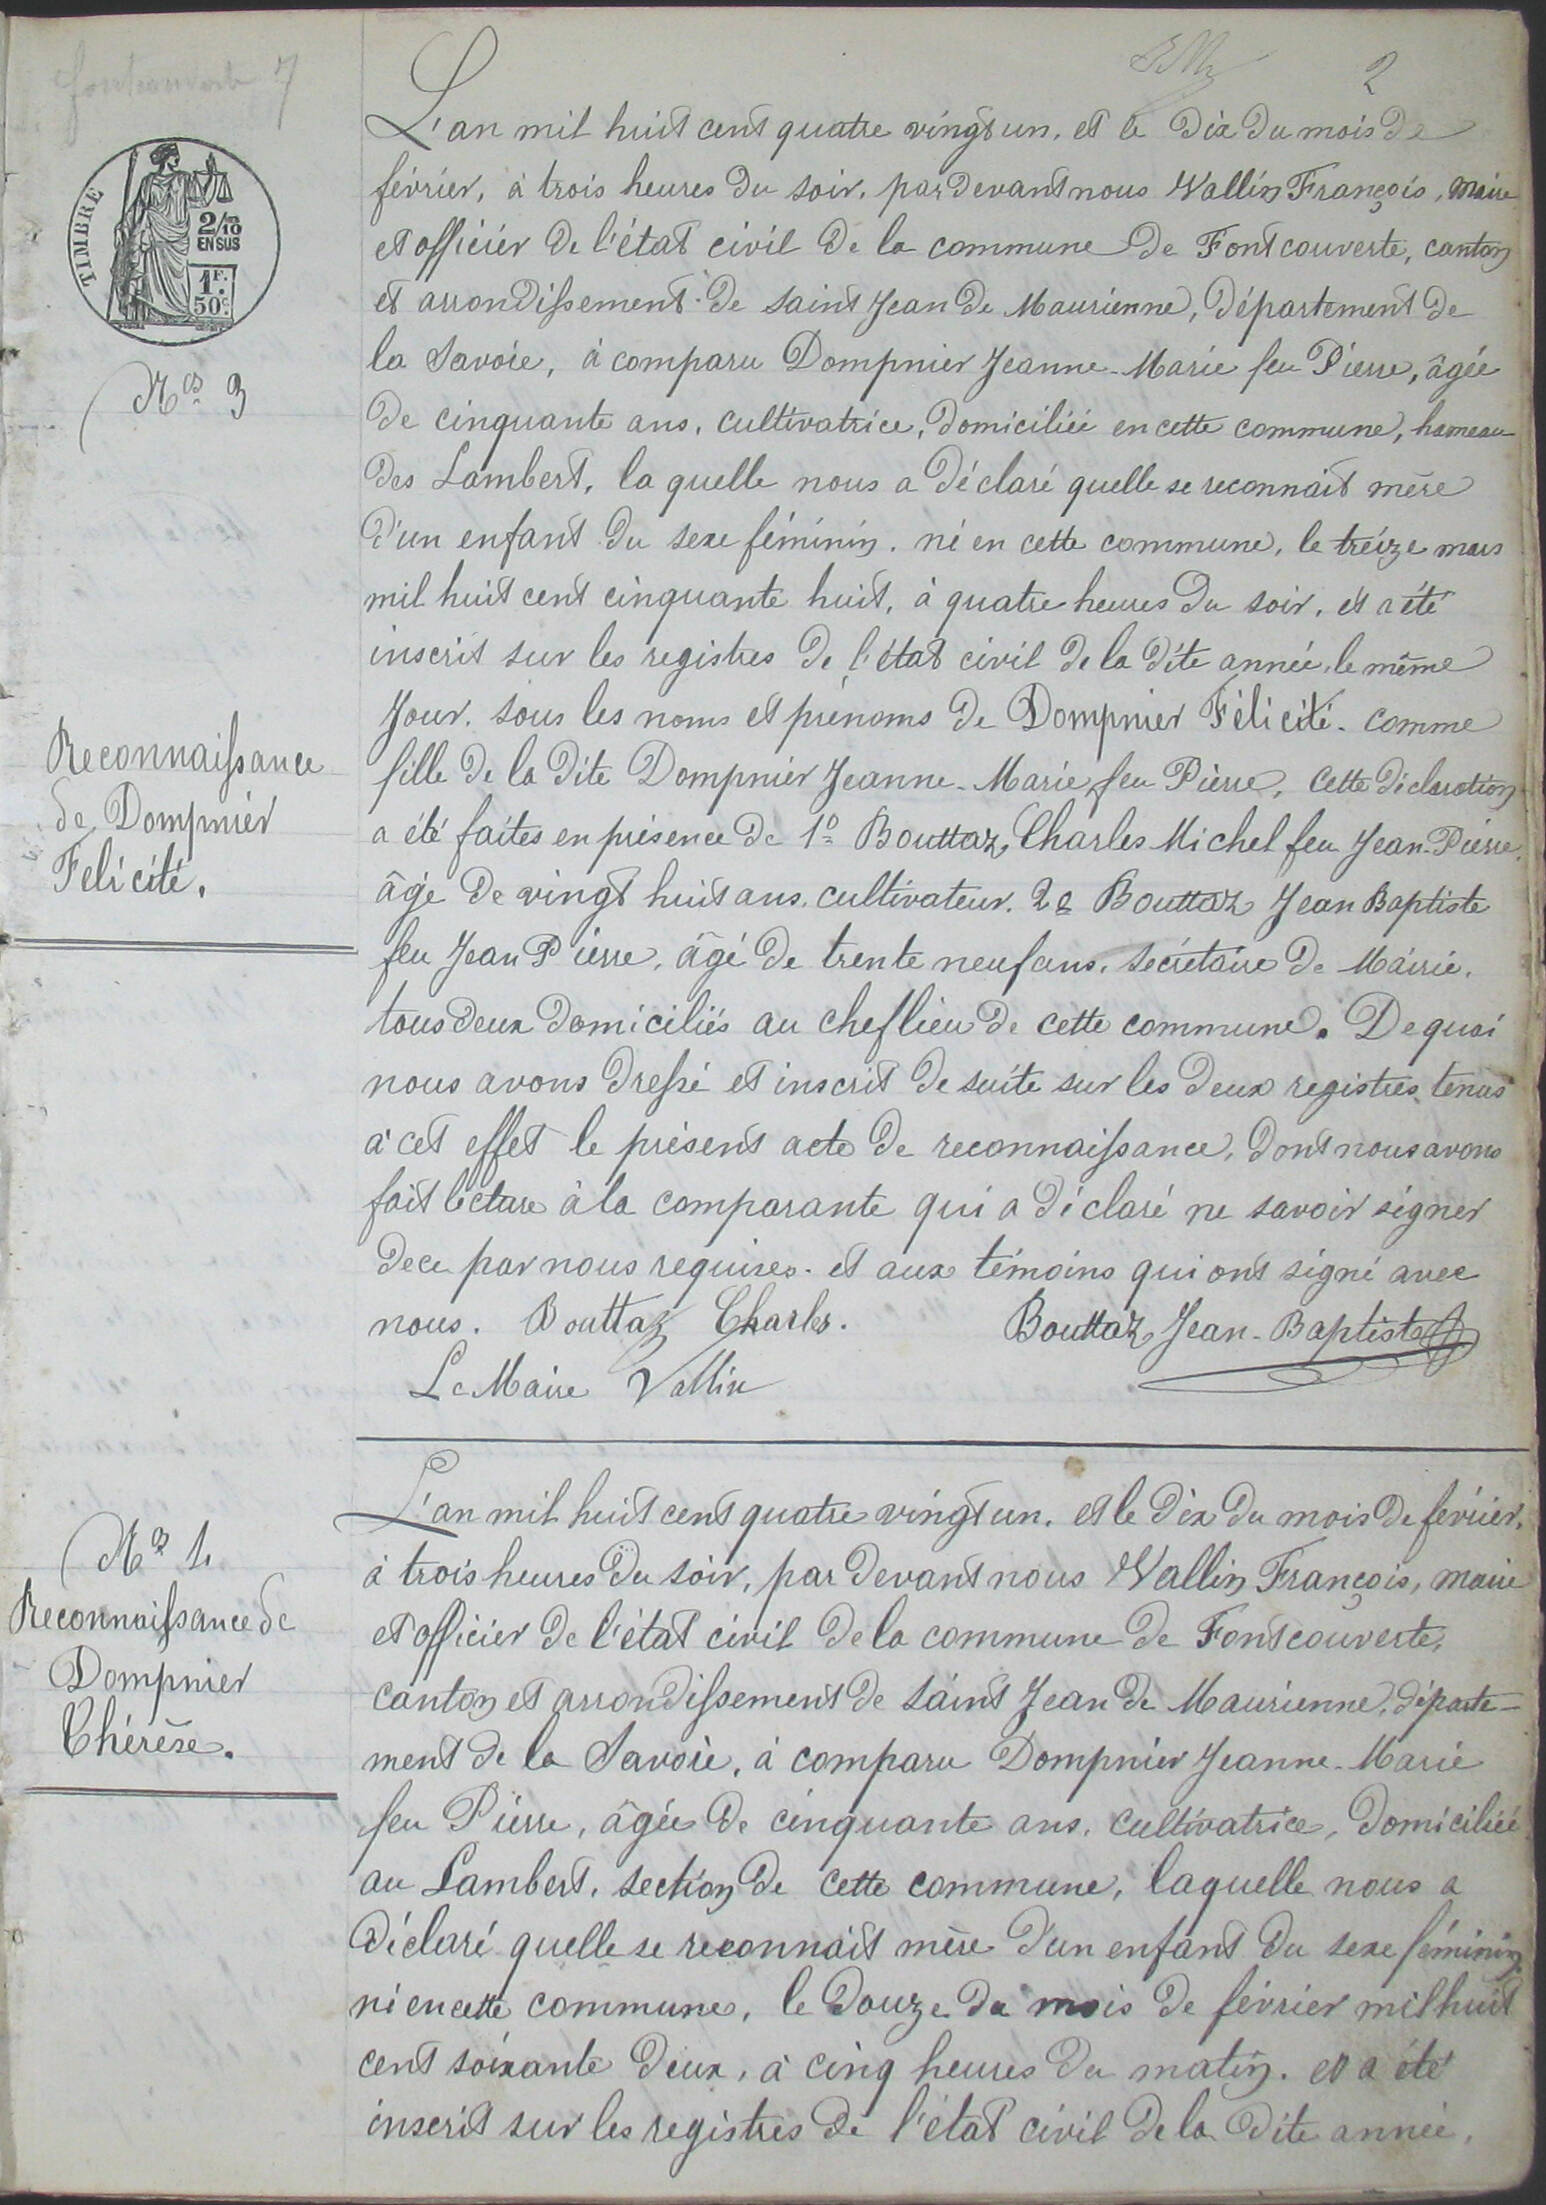 2
L'an mil huit cent quatre vingt un, et le dix du mois de
février, à trois heures du soir, par devant nous Vallin François, maire
et officier de l'état civil de la commune de Fontcouverte, canton
et arrondissement de saint Jean de Maurienne, département de
la Savoie, à comparu Dompnier Jeanne-Marie feu Pierre, âgée
de cinquante ans, cultivatrice, domiciliée en cette commune, hameau
des Lambert, la quelle nous a déclaré quelle se reconnait mère
d'un enfant du sexe féminin. né en cette commune, le treize mars
mil huit cent cinquante huit, à quatre heures du soir, et a été
inscrit sur les registres de l'état civil de la dite année, le même
Jour. sous les noms et prénoms de Dompnier Félicité. comme
fille de la dite Dompnier Jeanne-Marie feu Pierre, cette déclaration
a été faites en présence de 1º Bouttaz, Charles Michel feu Jean-Pierre,
âgé de vingt huit ans, cultivateur. 2e Bouttaz Jean Baptiste
feu Jean Pierre, âgé de trente neuf ans, secrétaire de Mairie,
tous deux domiciliés au chef lieu de cette commune. De quoi
nous avons dressé et inscrit de suite sur les deux registres tenus
à cet effet le présent acte de reconnaissance, dont nous avons
fait lecture à la comparante qui a déclaré ne savoir signer
de ce par nous requises. et aux témoins qui ont signé avec
nous. Bouttaz Charles. Bouttaz Jean-Baptiste
Le Maire Vallin
TIMBRE
2/10
EN SUS
1F.
50c.
Nos 3
Reconnaissance
de Dompnier
Félicité.
L'an mil huit cent quatre vingt un. et le dix du mois de février,
à trois heures du soir, par devant nous Vallin François, maire
et officier de l'état civil de la commune de Fontcouverte,
canton et arrondissement de saint Jean de Maurienne, départe-
ment de la Savoie, à comparu Dompnier Jeanne-Marie
feu Pierre, âgée de cinquante ans, cultivatrice, domiciliée
au Lambert, section de cette commune, laquelle nous a
déclaré quelle se reconnait mère d'un enfant du sexe féminin,
né en cette commune, le douze du mois de février mil huit
cent soixante deux, à cinq heures du matin. et a été
inscrit sur les registres de l'état civil de la dite année,
Reconnaissance de
Dompnier
Thérèse.